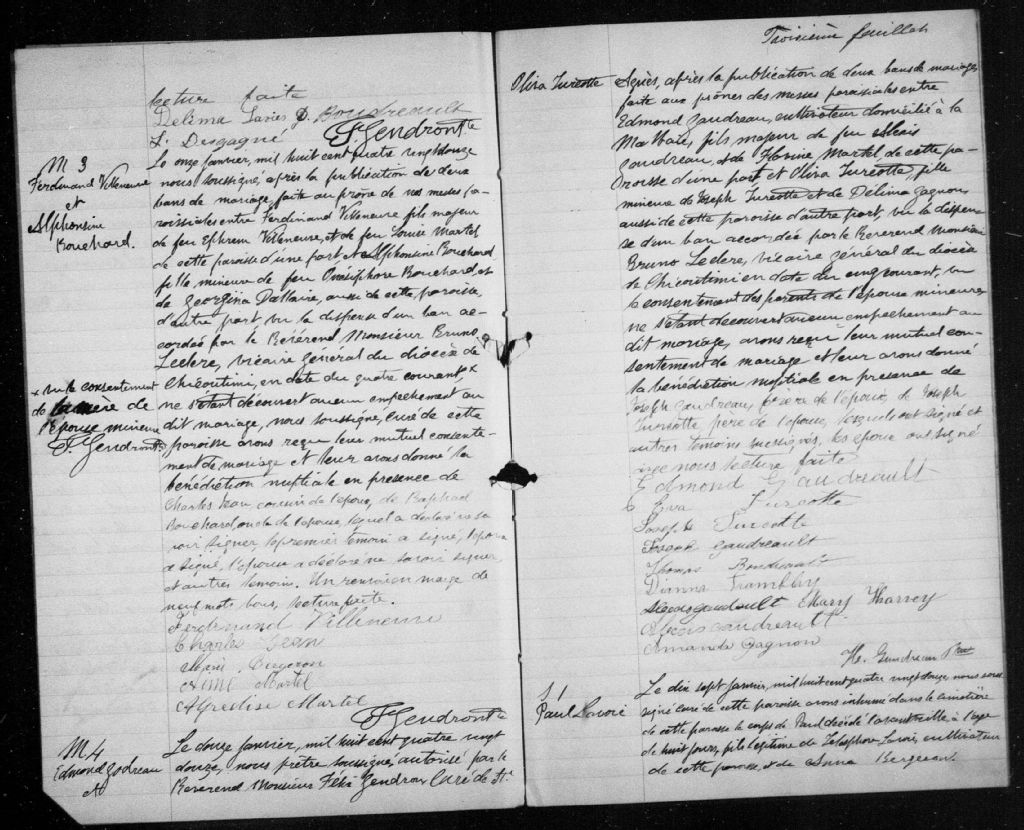 lecture faite
Délima Lavoie D. Boudreault
L. Desgagné F. Gendron Ptre
M 3
Ferdinand Villeneuve
et
Alphonsine
Bouchard.
Le onze Janvier, mil huit cent quatre vingt douze
nous soussigné, après la publication de deux
bans de mariage, faite au prône de nos messes pa-
roissiales entre Ferdinand Villeneuve fils majeur
de feu Ephrem Villeneuve, et de feu Louise Martel
de cette paroisse d'une part et Alphonsine Bouchard
fille mineure de feu Onésiphore Bouchard, et
de Georgina Dallaire, aussi de cette paroisse,
d'autre part vu la dispense d'un ban ac-
cordée par le Révérend Monsieur Bruno
Leclerc, vicaire général du diocèse de
Chicoutimi, en date du quatre courant, x
ne s'étant découvert aucun empêchement au
dit mariage, nous soussigné, curé de cette
paroisse avons reçu leur mutuel consente-
ment de mariage et leur avons donné la
bénédiction nuptiale en présence de
Charles Jean cousin de l'époux, de Raphael
Bouchard oncle de l'épouse, lequel a déclaré ne sa
voir signer, le premier temoin a signé, l'époux
a signé, l'épouse a déclaré ne savoir signer
et autres temoins. Un renvoi en marge de
neuf mots bons, lecture faite.
x vu le consentement
de la mère de
l'épouse mineure
F. Gendron Ptre
Ferdinand Villeneuve
Charles Jean
Bergeron
Aimé Martel
Alfredise Martel
F. Gendron Ptre
M. 4
Edmond Godreau
et
Le douze Janvier, mil huit cent quatre vingt
douze, nous prêtre soussigné, autorisé par le
Révérend Monsieur Félix Gendron Curé de St.
Troisième feuillet
Oliva Turcotte
Agnès, après la publication de deux bans de mariage
faite aux prônes des messes paroissiales entre
Edmond Gaudreau, cultivateur domicilié à la
Malbaie, fils majeur de feu Alexis
Gaudreau, et de Florine Martel de cette pa-
roisse d'une part et Oliva Turcotte, fille
mineure de Joseph Turcotte et de Délima Gagnon
aussi de cette paroisse d'autre part, vu la dispen-
se d'un ban accordée par le Révérend Monsieur
Bruno Leclerc, vicaire général du diocèse
de Chicoutimi en date du cinq courant, vu
le consentement des parents de l'épouse mineure
ne s'étant découvert aucun empêchement au
dit mariage, avons reçu leur mutuel con-
sentement de mariage et leur avons donné
la bénédiction nuptiale en présence de
Joseph Gaudreau, frère de l'époux, de Joseph
Turcotte père de l'épouse, lesquels ont signé et
autres temoins soussignés, les époux ont signé
avec nous lecture faite
Edmond Gaudreault
Eva Turcotte
Joseph Turcotte
Joseph Gaudreault
Thomas Boudreault
Dianna Tremblay
Alexis Gaudreault Mary Harvey
Alexis Gaudreault
Amanda Gagnon
H. Gaudreau Ptre
S. 1
Paul Lavoie
Le dix sept Janvier, mil huit cent quatre vingt douze nous sous
signé curé de cette paroisse avons inhumé dans le cimetière
de cette paroisse le corps de Paul décédé l'avant veille à l'age
de huit jours, fils légitime de Télesphore Lavoie, cultivateur
de cette paroisse, et de Anna Bergeron.